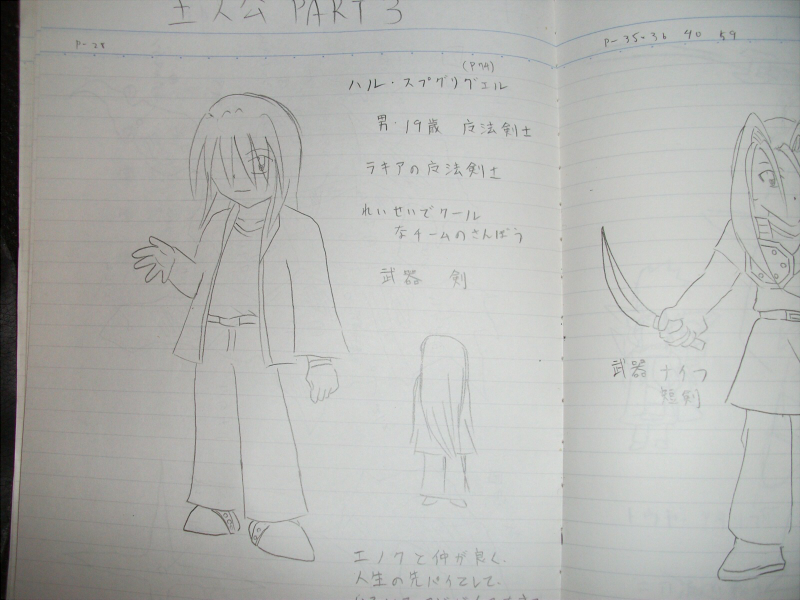 主人公 PART 3
P-28
P-35-36 40 59
(P74)
ハル・スプグリグエル
男・19歳 広法剣士
ラキアの広法剣士
れいせいでクール
なチームのさんぼう
武器 剣
武器 ナイフ
短剣
エノクと仲が良く、
人生の先パイとして、